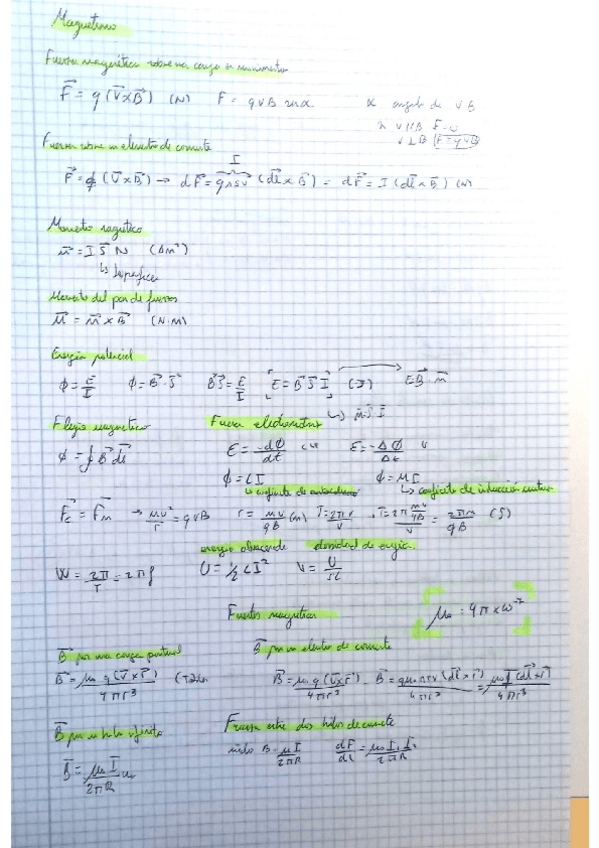 Magnetismo
Fuerza magnética sobre una carga en movimiento
F⃗ = q (v⃗ x B⃗) (N) F = q v B senα α ángulo de v B
v ∥ B F=0
v ⊥ B F=qvB
Fuerza sobre un elemento de corriente
I
F⃗ = q (v⃗ x B⃗) → dF⃗ = qnsv (dl⃗ x B⃗) = dF⃗ = I (dl⃗ x B⃗) (N)
Momento magnético
m⃗ = I S⃗ N (Am²)
↳ Superficie
Momento del par de fuerzas
M⃗ = m⃗ x B⃗ (N·M)
Energía potencial
ϕ = E/I ϕ = B⃗ · S⃗ B⃗S⃗ = E/I [E = B⃗ S⃗ I] (J) E B⃗ · m⃗
↳ m⃗ = S⃗ I
Flujo magnético Fuerza electromotriz
ϕ = ∫ B⃗ ds⃗ Ɛ = -dϕ/dt Ɛ = -Δϕ/Δt v
ϕ = LI ϕ = MI
↳ coeficiente de autoinducción ↳ coeficiente de inducción mutua
F⃗c = F⃗m → mv²/r = qvB r = mv/qB (m) T = 2πr/v T = 2π (mv/qB)/v = 2πm/qB (s)
energía almacenada densidad de energía
W = 2π/T = 2πf U = ½ L I²
Fuentes magnéticas μ₀ = 4π x 10⁻⁷
B⃗ por una carga puntual B⃗ por un elemento de corriente
B⃗ = μ₀ q (v⃗ x r⃗) / 4πr³ (Tesla) B⃗ = μ₀ q (v⃗ x r⃗) / 4πr³ B⃗ = qμ₀nsv (dl⃗ x r⃗) / 4πr³ = μ₀ I (dl⃗ x r⃗) / 4πr³
B⃗ por un hilo infinito Fuerza entre dos hilos de corriente
B⃗ = μ₀ I / 2πR B = μ I / 2πR dF/dl = μ₀ I₁ I₂ / 2πR